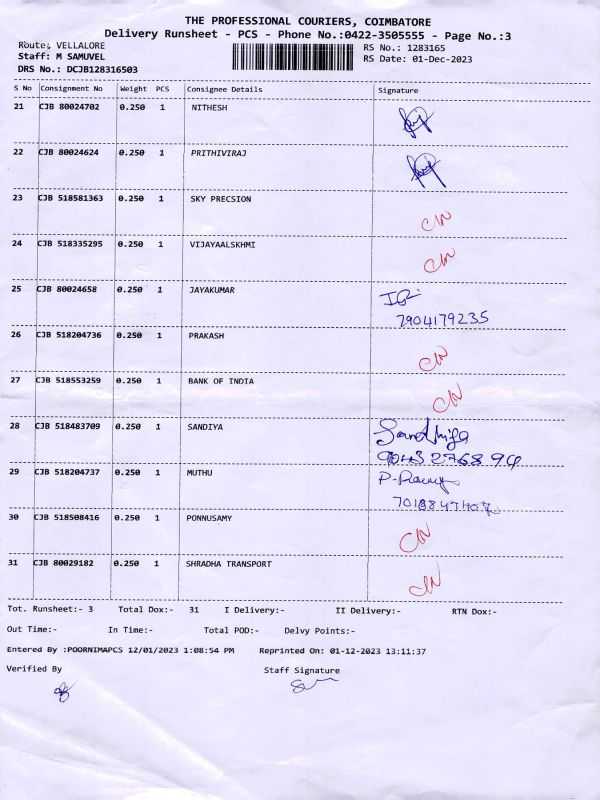 THE PROFESSIONAL COURIERS, COIMBATORE
Delivery Runsheet - PCS - Phone No.:0422-3505555 - Page No.:3
Route: VELLALORE
Staff: M SAMUVEL
DRS No.: DCJB128316503
RS No.: 1283165
RS Date: 01-Dec-2023
S No Consignment No Weight PCS Consignee Details Signature
21 CJB 80024702 0.250 1 NITHESH
22 CJB 80024624 0.250 1 PRITHIVIRAJ
23 CJB 518581363 0.250 1 SKY PRECSION
24 CJB 518335295 0.250 1 VIJAYAALSKHMI
25 CJB 80024658 0.250 1 JAYAKUMAR
7904179235
26 CJB 518204736 0.250 1 PRAKASH
27 CJB 518553259 0.250 1 BANK OF INDIA
28 CJB 518483709 0.250 1 SANDIYA Sandhiya
29 CJB 518204737 0.250 1 MUTHU
30 CJB 518508416 0.250 1 PONNUSAMY
31 CJB 80029182 0.250 1 SHRADHA TRANSPORT
Tot. Runsheet:- 3 Total Dox:- 31 I Delivery:- II Delivery:- RTN Dox:-
Out Time:- In Time:- Total POD:- Delvy Points:-
Entered By :POORNIMAPCS 12/01/2023 1:08:54 PM Reprinted On: 01-12-2023 13:11:37
Verified By Staff Signature